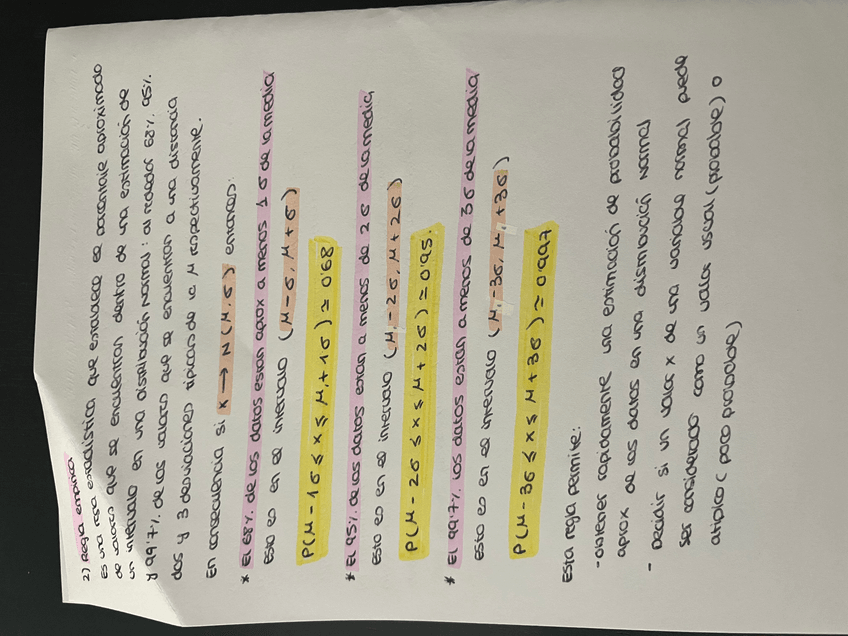 2) Regla empírica
Es una regla estadística que establece el porcentaje aproximado
de valores que se encuentran dentro de una estimación de
un intervalo en una distribución normal: alrededor 68%, 95%
y 99.7% de los valores que se encuentran a una distancia
dos y 3 desviaciones típicas de la μ respectivamente.
En consecuencia si x → N(μ, σ) entonces:
* El 68% de los datos están aprox a menos 1σ de la media
Esto es en el intervalo (μ-σ, μ+σ)
P(μ-1σ ≤ x ≤ μ+1σ) ≃ 0'68
* El 95% de los datos están a menos de 2σ de la media
esto es en el intervalo (μ-2σ, μ+2σ)
P(μ-2σ ≤ x ≤ μ+2σ) ≃ 0'95.
* El 99.7% los datos están a menos de 3σ de la media
esto es en el intervalo (μ-3σ, μ+3σ)
P(μ-3σ ≤ x ≤ μ+3σ) ≃ 0'997
Esta regla permite:
-obtener rapidamente una estimación de probabilidad
aprox de los datos en una distribución normal
- Decidir si un valor x de una variable normal puede
ser considerado como un valor usual (probable) o
atípico (poco probable)